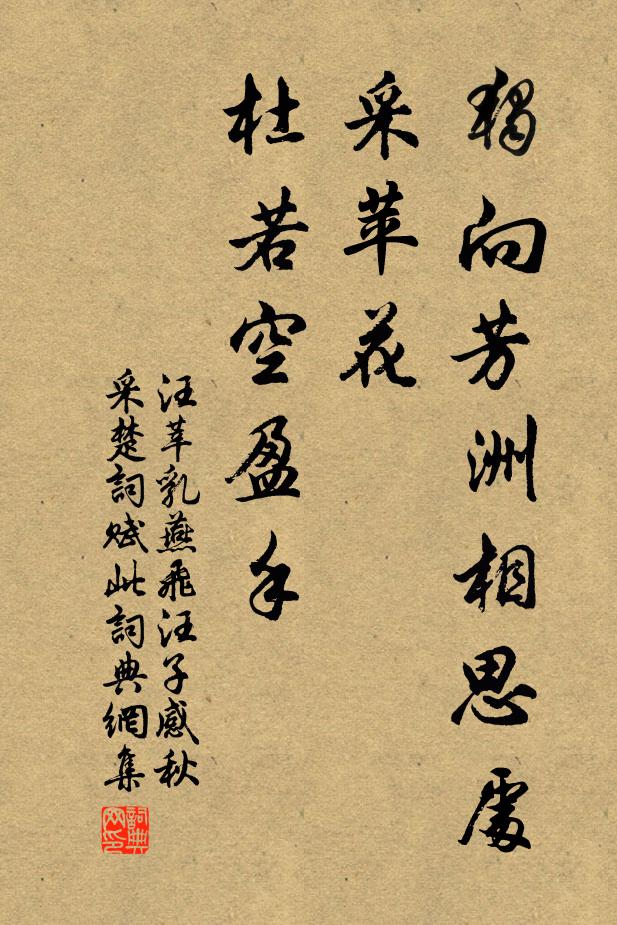 獨向芳洲相思處
采苹花
杜若空盈手
汪莘乳燕飛汪子感秋
采楚詞賦此詞典網集
詞典网印